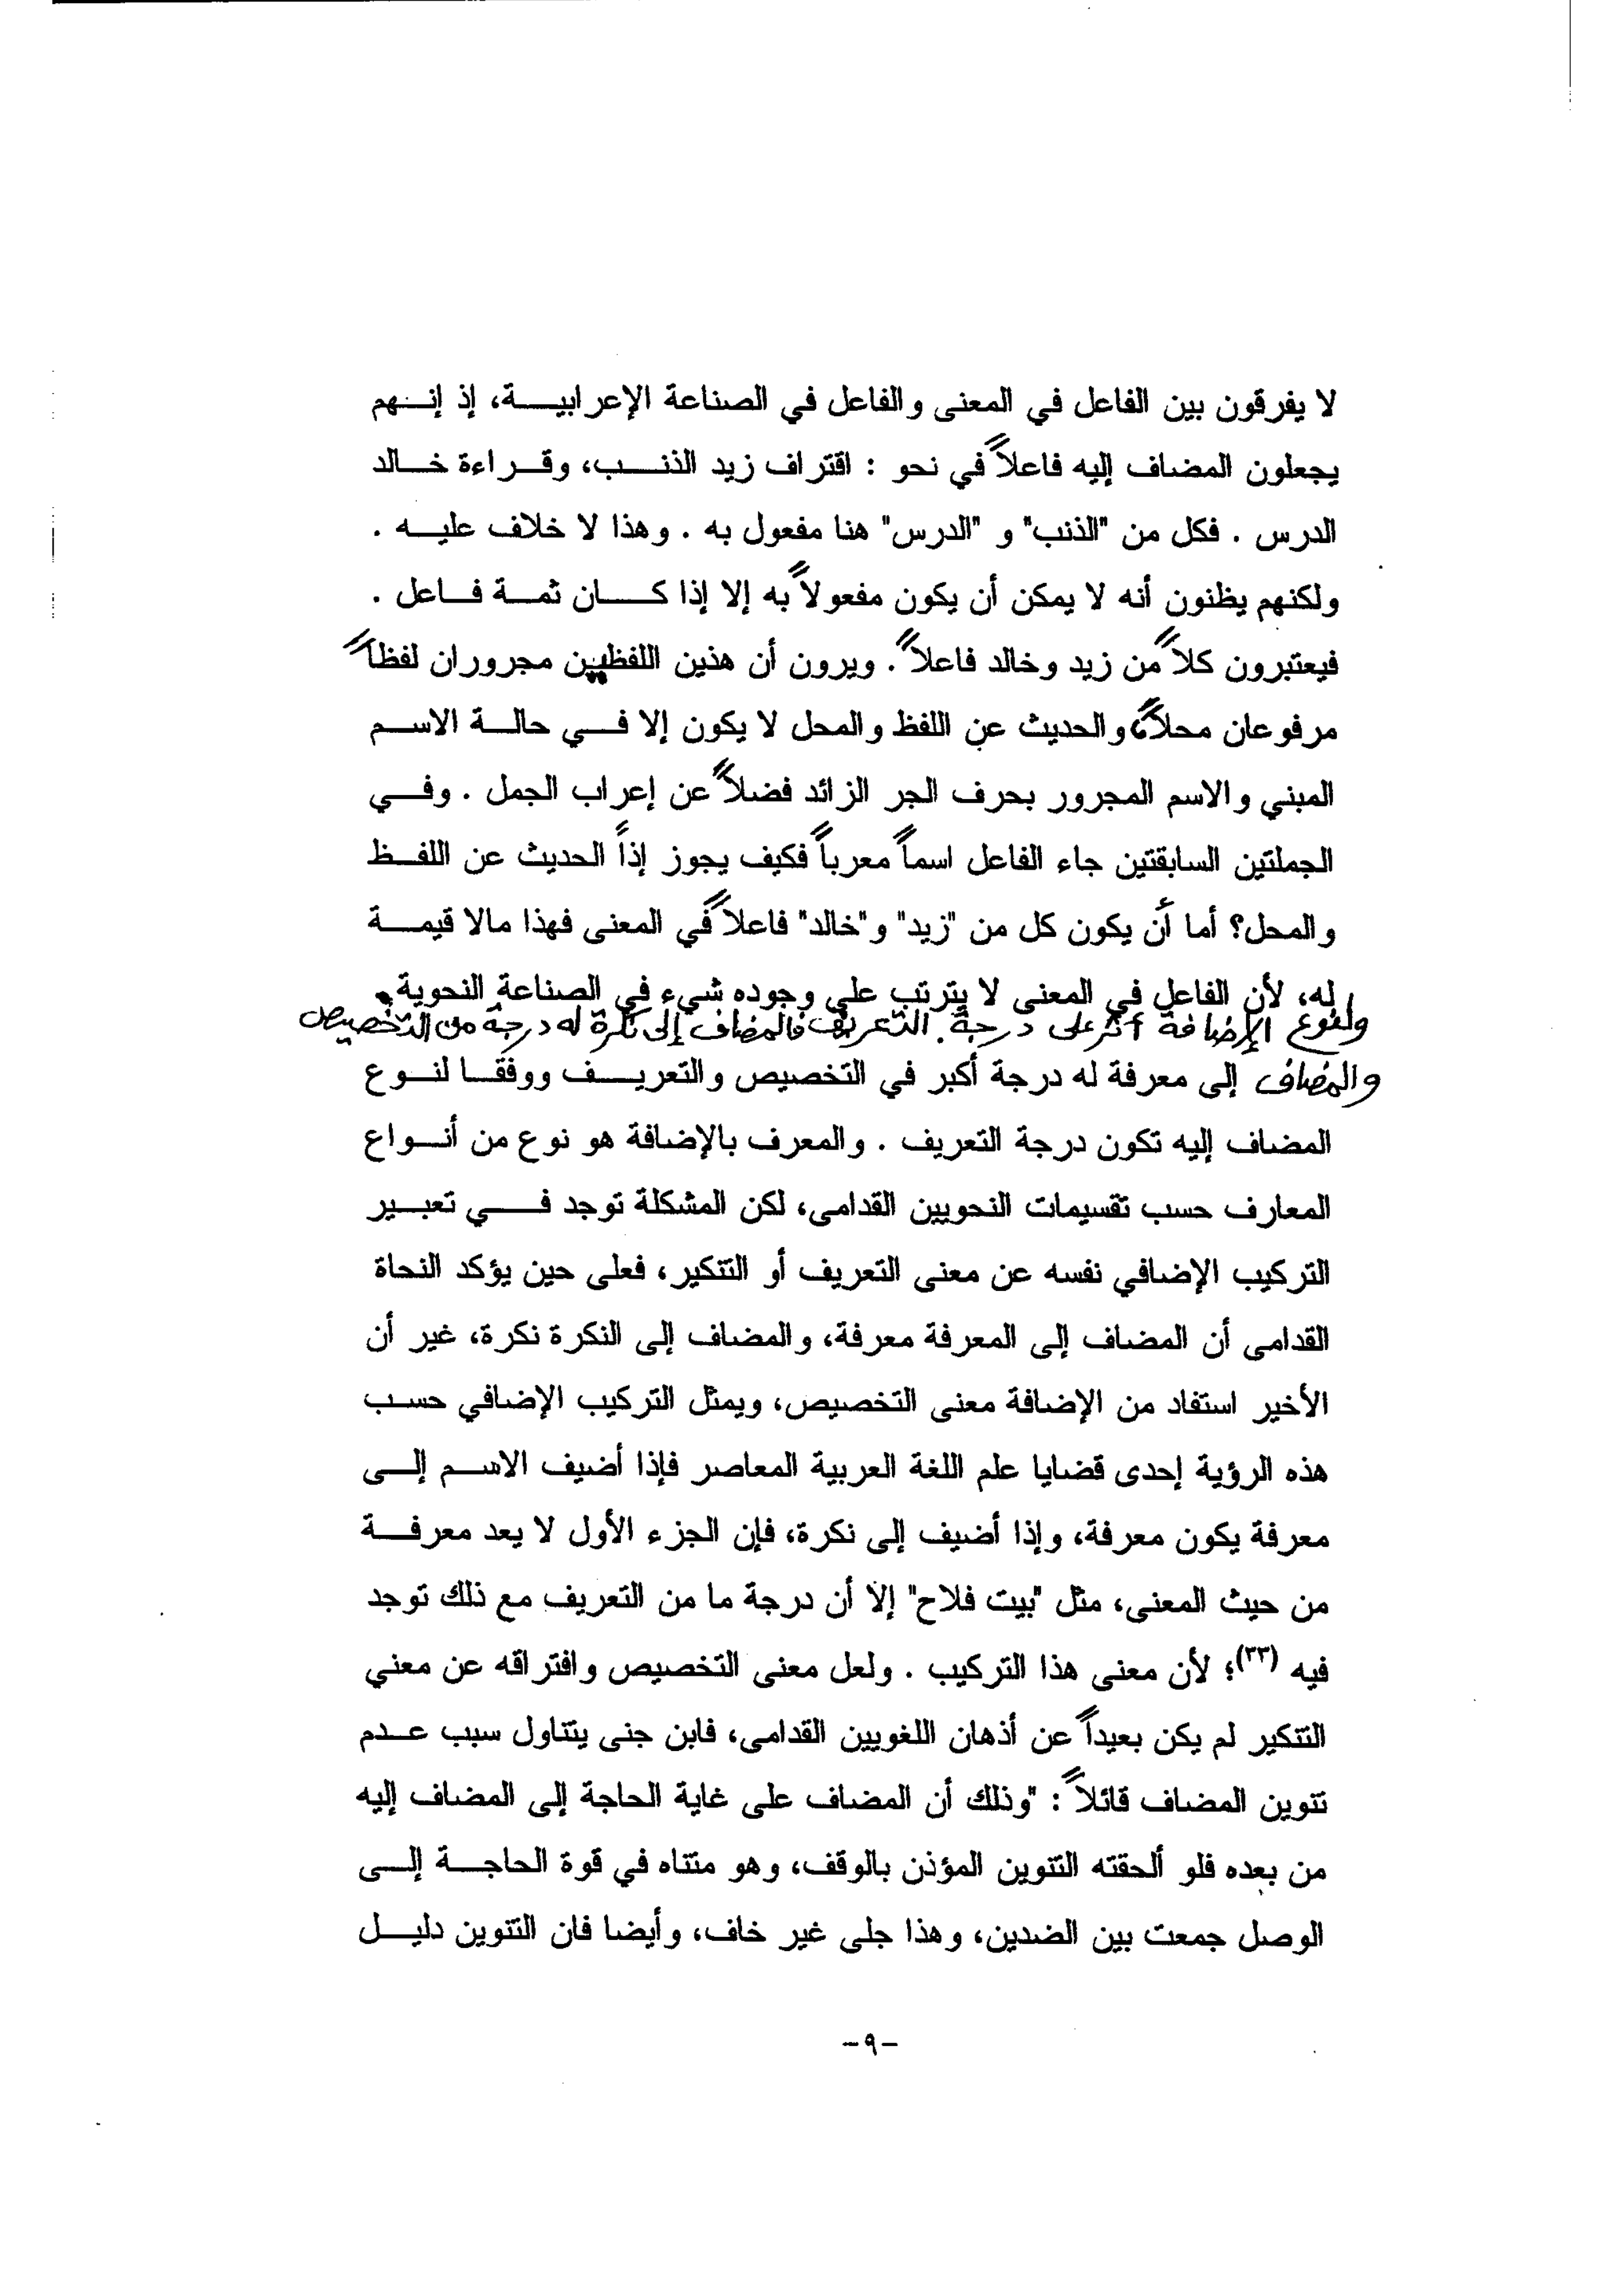 لا يفرقون بين الفاعل في المعنى والفاعل في الصناعة الإعرابية، إذ إنهم
يجعلون المضاف إليه فاعلاً في نحو : اقتراف زيد الذنب، وقراءة خالد
الدرس . فكل من "الذنب" و "الدرس" هنا مفعول به . وهذا لا خلاف عليه .
ولكنهم يظنون أنه لا يمكن أن يكون مفعولاً به إلا إذا كان ثمة فاعل .
فيعتبرون كلاً من زيد وخالد فاعلاً . ويرون أن هذين اللفظين مجروران لفظاً
مرفوعان محلاً، والحديث عن اللفظ والمحل لا يكون إلا في حالة الاسم
المبني والاسم المجرور بحرف الجر الزائد فضلاً عن إعراب الجمل . وفي
الجملتين السابقتين جاء الفاعل اسماً معرباً فكيف يجوز إذاً الحديث عن اللفظ
والمحل؟ أما أن يكون كل من "زيد" و"خالد" فاعلاً في المعنى فهذا مالا قيمة
له، لأن الفاعل في المعنى لا يترتب على وجوده شيء في الصناعة النحوية.
ولنوع الإضافة أثر على درجة التعريف فالمضاف إلى نكرة له درجة من التخصيص
والمضاف إلى معرفة له درجة أكبر في التخصيص والتعريف ووفقا لنوع
المضاف إليه تكون درجة التعريف . والمعرف بالإضافة هو نوع من أنواع
المعارف حسب تقسيمات النحويين القدامى، لكن المشكلة توجد في تعبير
التركيب الإضافي نفسه عن معنى التعريف أو التنكير، فعلى حين يؤكد النحاة
القدامى أن المضاف إلى المعرفة معرفة، والمضاف إلى النكرة نكرة، غير أن
الأخير استفاد من الإضافة معنى التخصيص، ويمثل التركيب الإضافي حسب
هذه الرؤية إحدى قضايا علم اللغة العربية المعاصر فإذا أضيف الاسم إلى
معرفة يكون معرفة، وإذا أضيف إلى نكرة، فإن الجزء الأول لا يعد معرفة
من حيث المعنى، مثل "بيت فلاح" إلا أن درجة ما من التعريف مع ذلك توجد
فيه (٣٣)؛ لأن معنى هذا التركيب . ولعل معنى التخصيص وافتراقه عن معني
التنكير لم يكن بعيداً عن أذهان اللغويين القدامى، فابن جنى يتناول سبب عدم
تنوين المضاف قائلاً : "وذلك أن المضاف على غاية الحاجة إلى المضاف إليه
من بعده فلو ألحقته التنوين المؤذن بالوقف، وهو متناه في قوة الحاجة إلى
الوصل جمعت بين الضدين، وهذا جلى غير خاف، وأيضا فان التنوين دليل
-٩-